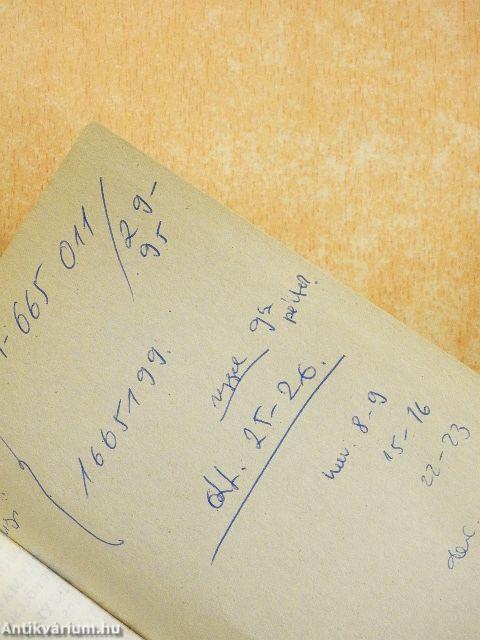 1-665 011 / 29-
95
1665199.
reggel 9h
péntek.
okt. 25-26.
nov. 8-9
15-16
22-23
dec.
Antikvárium.hu